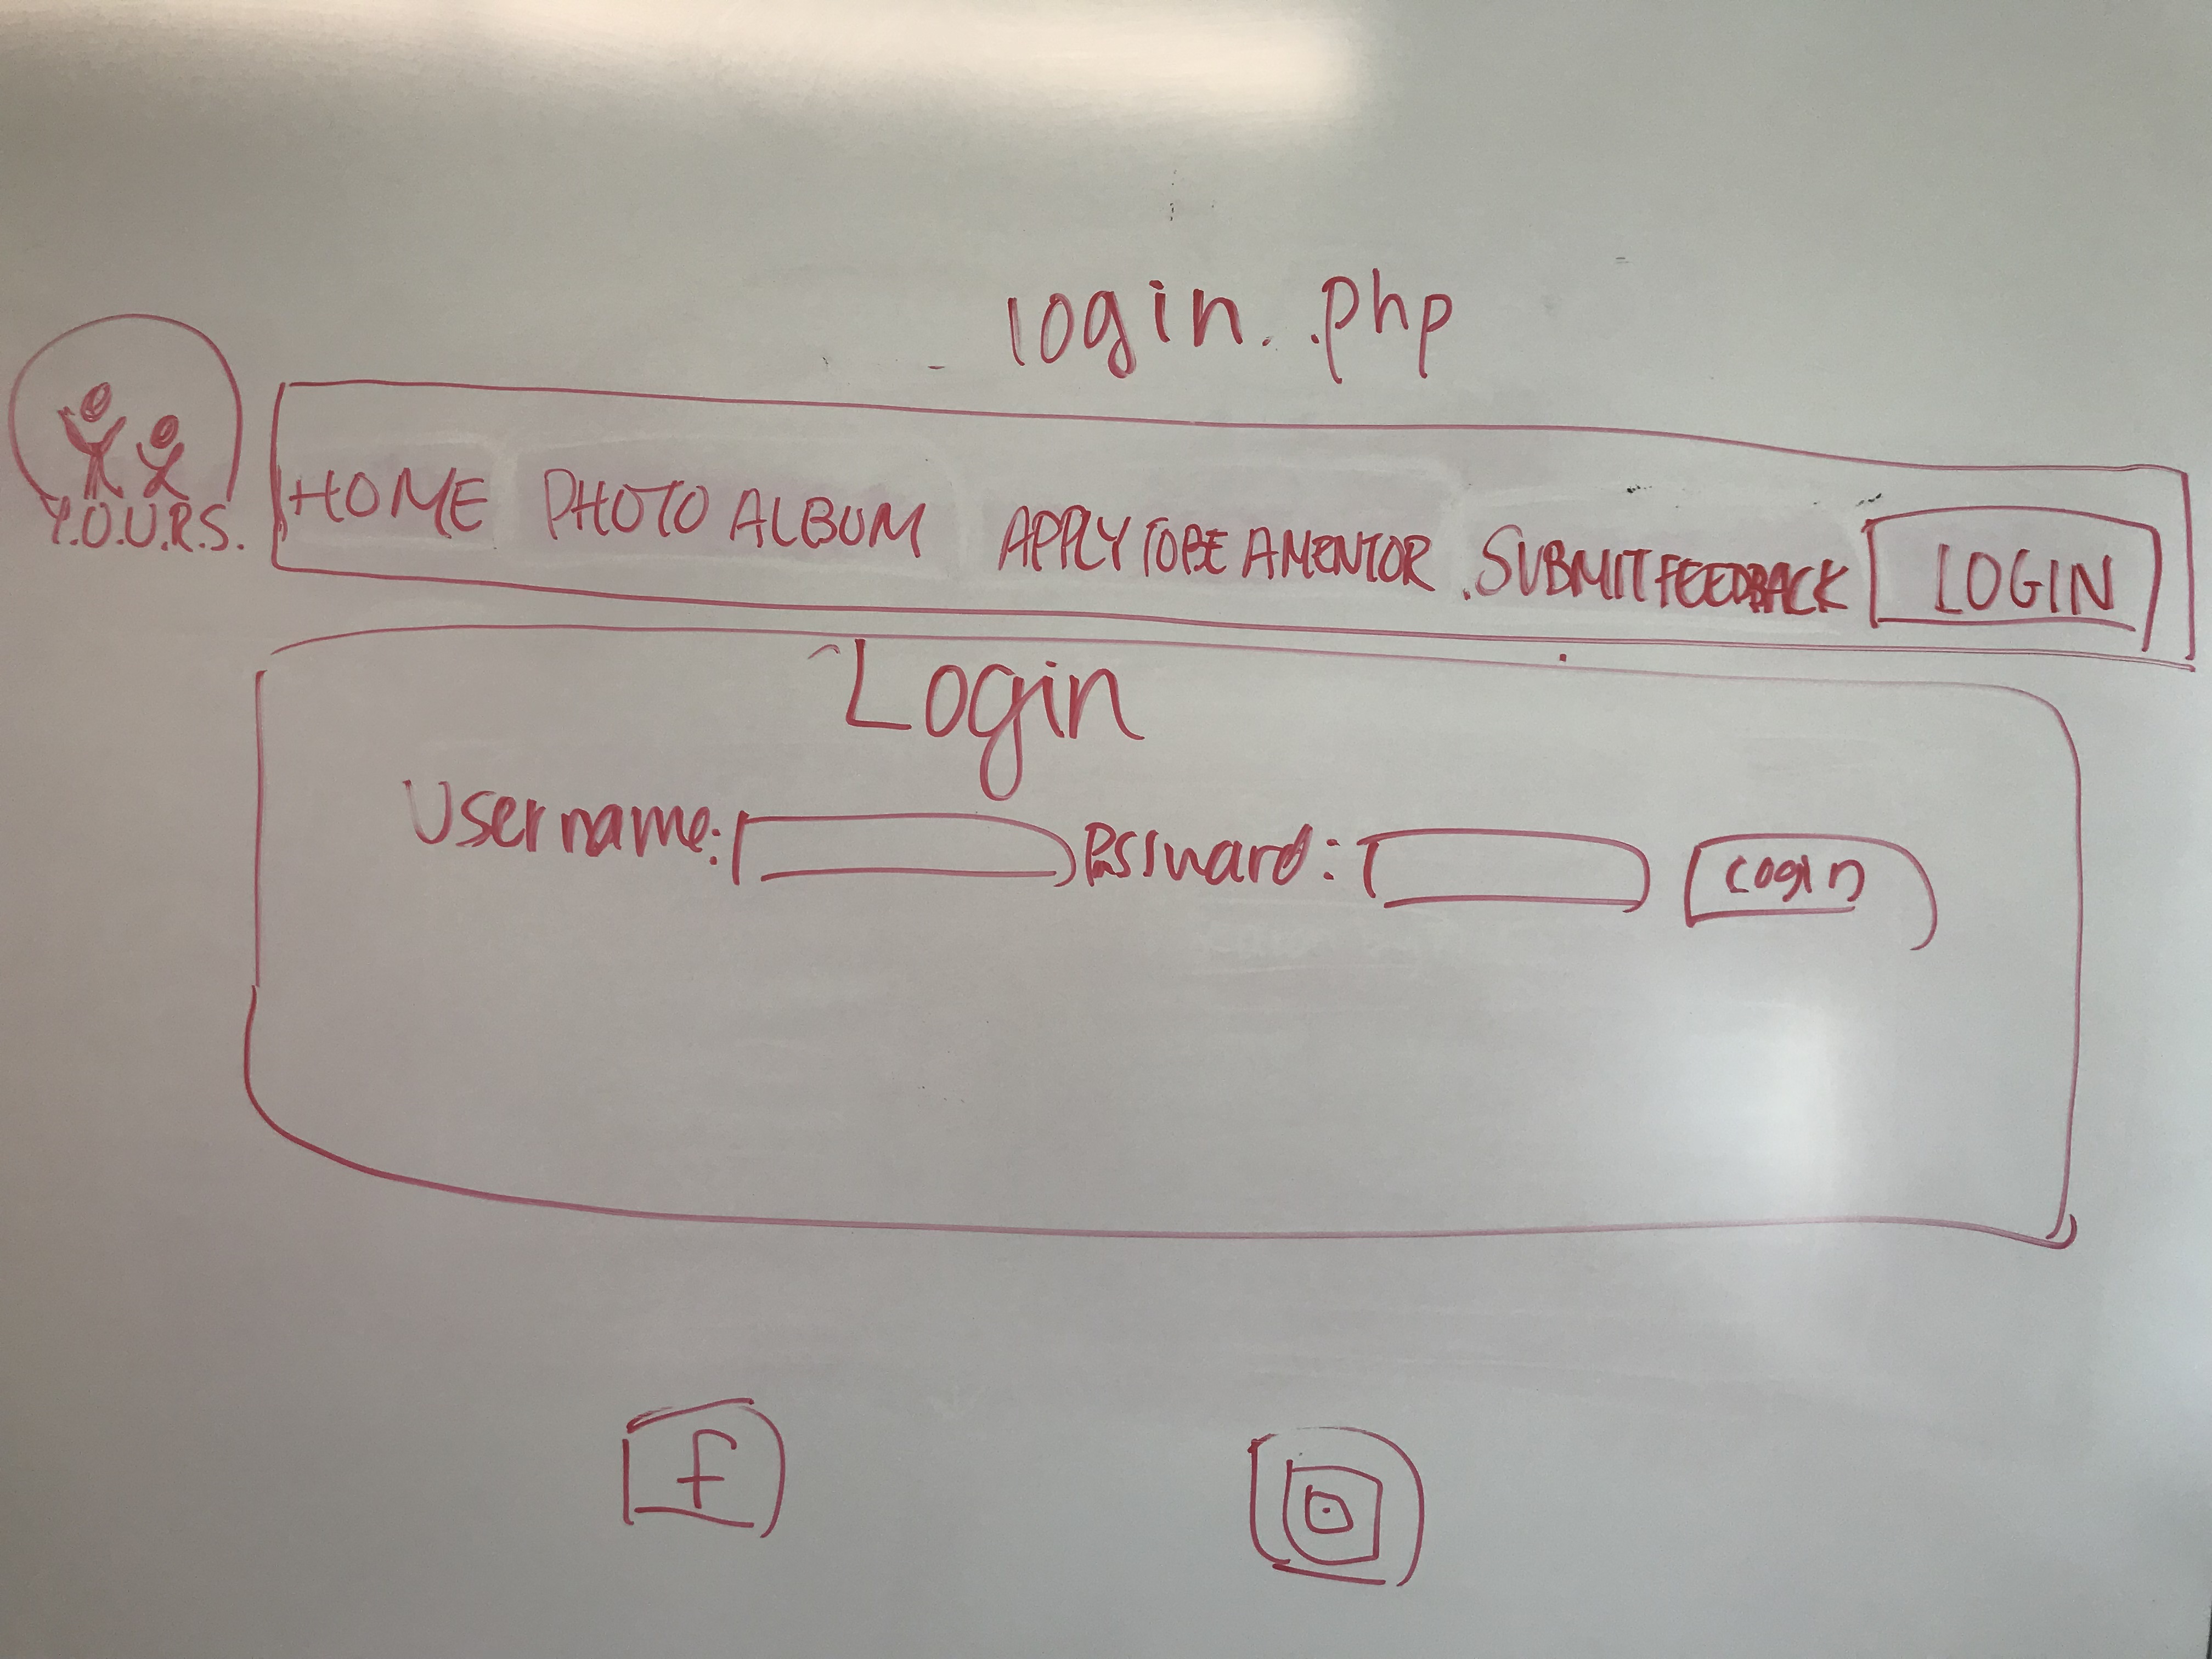 login..php
Y.O.U.R.S.
HOME PHOTO ALBUM APPLY TO BE A MENTOR .SUBMIT FEEDBACK LOGIN
Login
Username: Password: Login
f